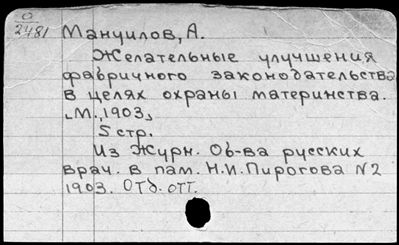 О
2481
Мануилов, А.
Желательные улучшения
фабричного законодательства
в целях охраны материнства.
[М., 1903]
5 стр.
Из Журн. Об-ва русских
врач. в пам. Н.И. Пирогова №2
1903. Отд. отт.